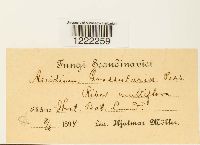 1222259
Fungi Scandinavici
Aecidium Grossulariae Pers.
Ribes multiflora
Hort. Bot.
1894 Hjalmar Möller.